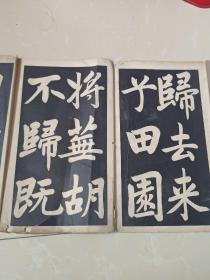 歸去来
兮田園
将蕪胡
不歸既